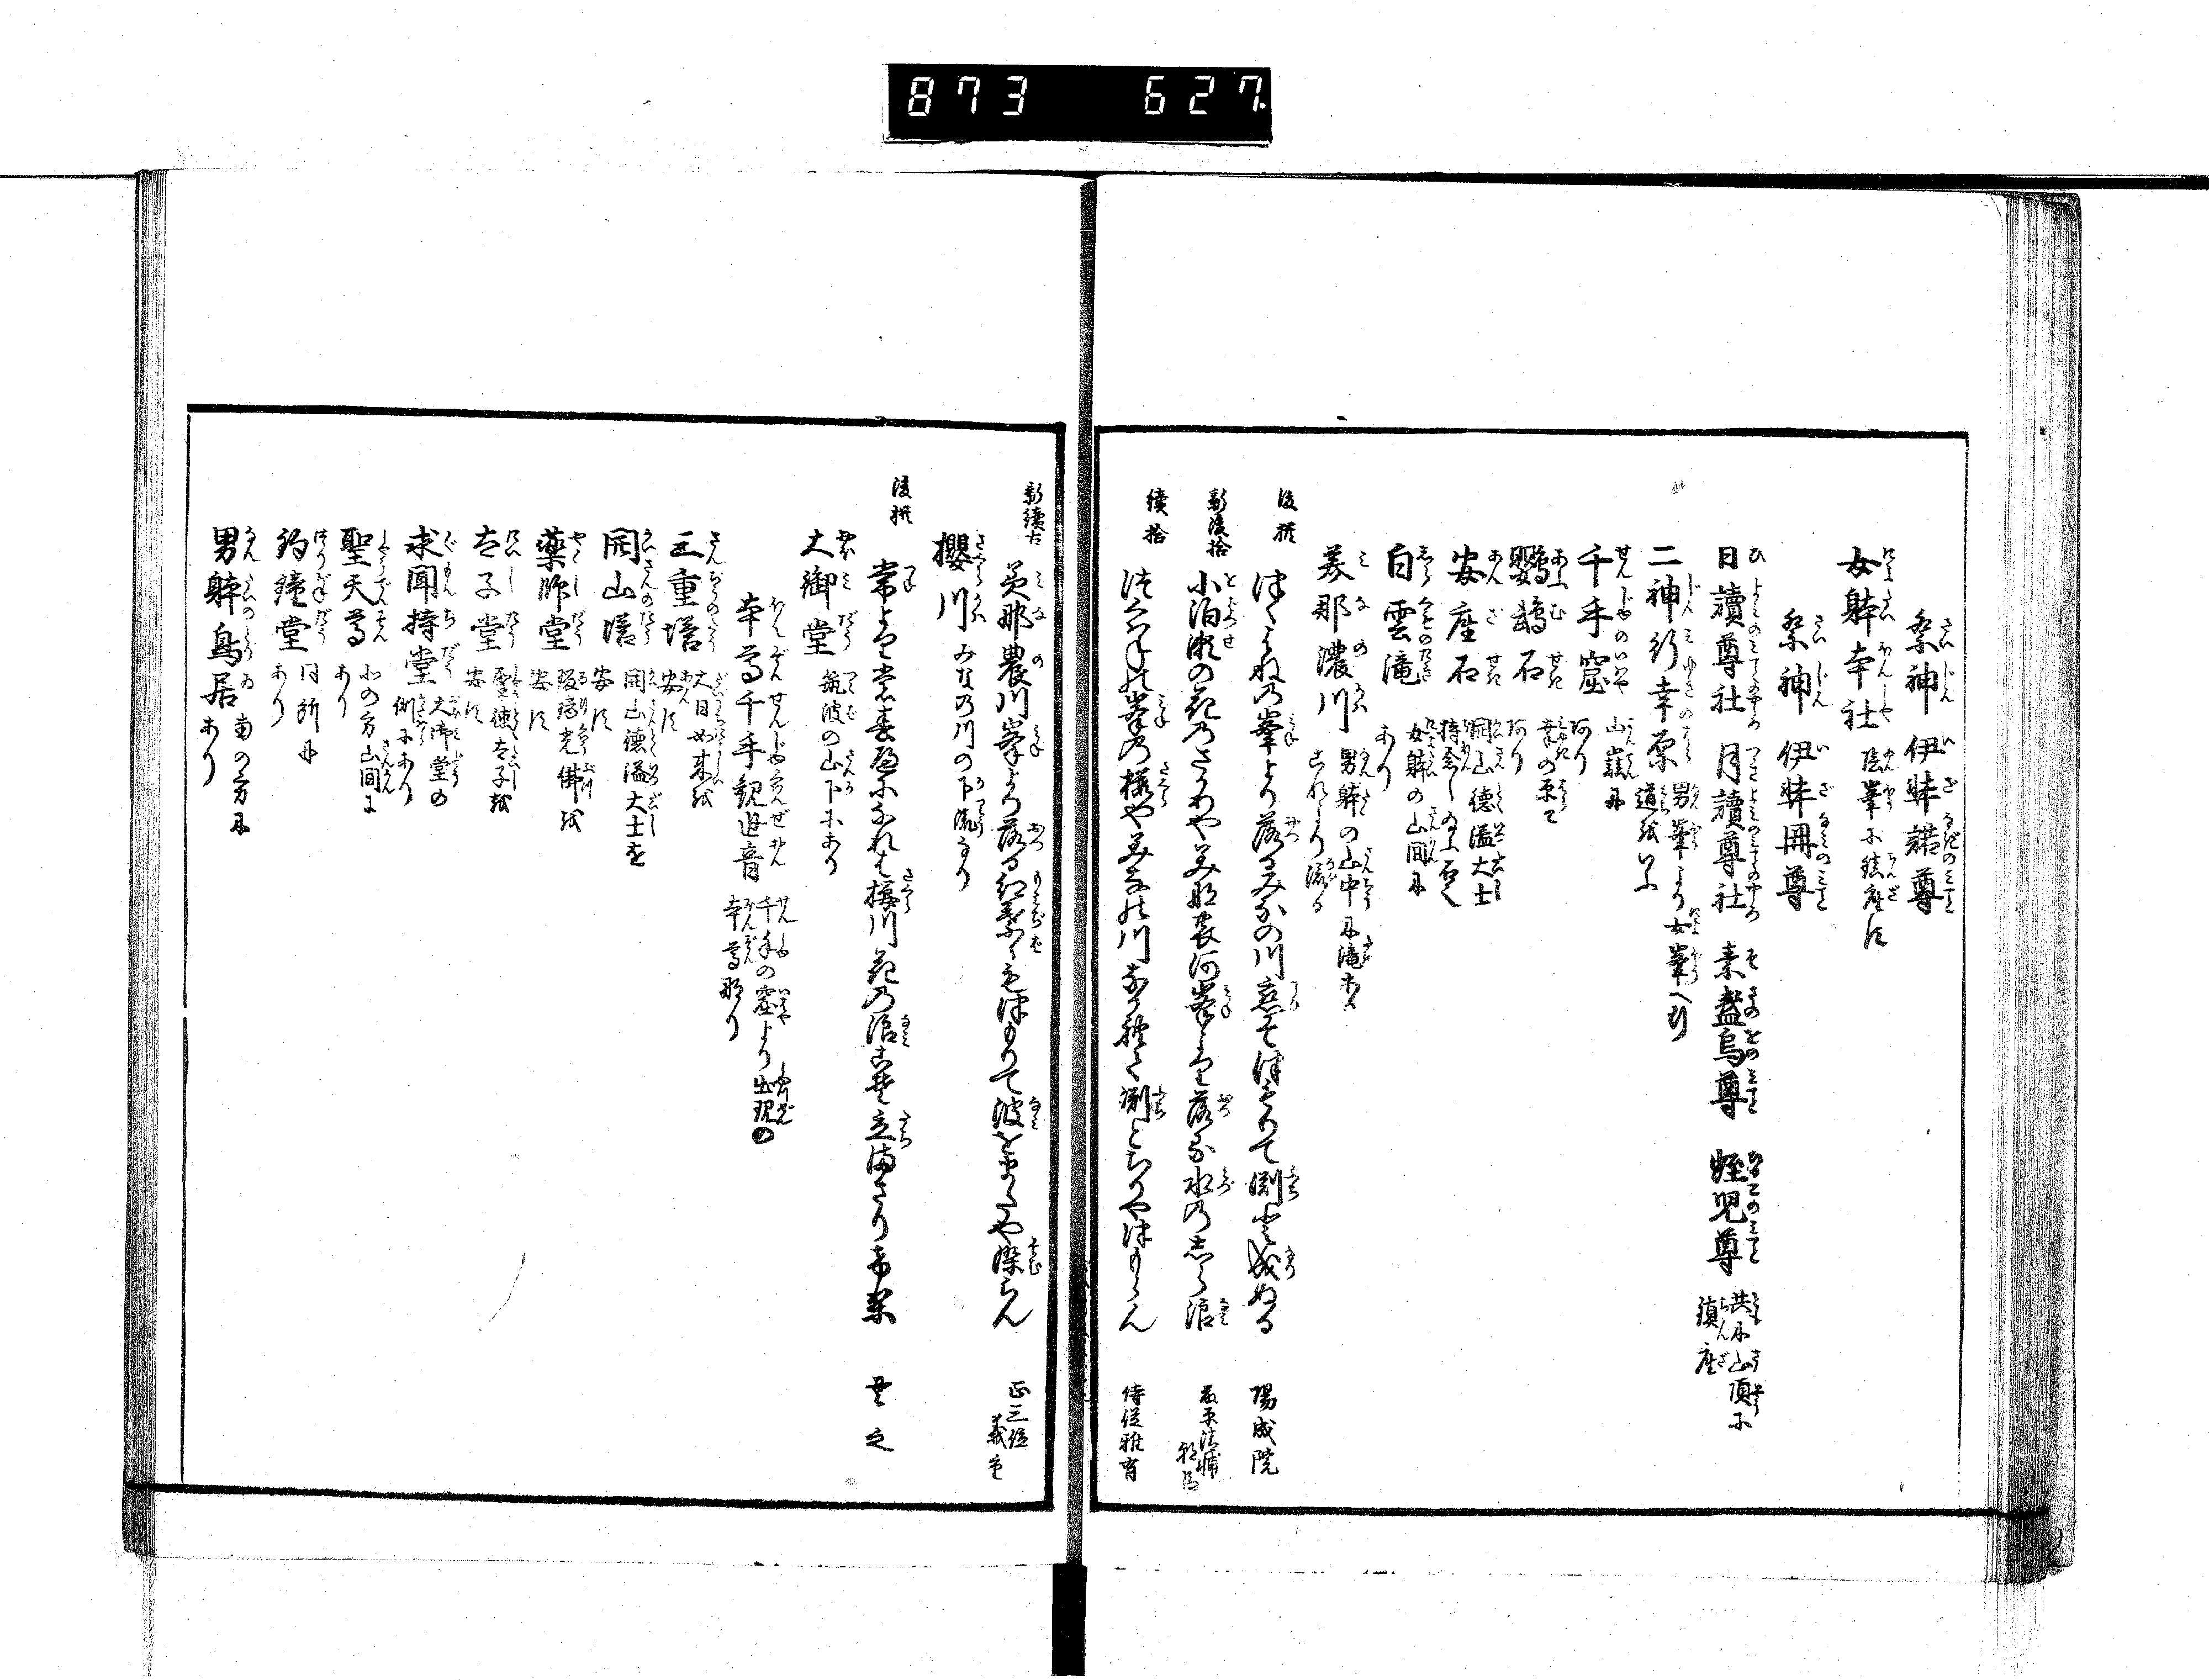 873 627.
祭神 伊弉諾尊
女躰本社 陰峯に鎮座す
祭神 伊弉冊尊
日讀尊社 月讀尊社 素盞烏尊 蛭児尊 共に山頂に
鎮座
二神行幸原 男峯より女峯へ行
道をいふ
千手窟 山嶽に
あり
鸚鵡石
あり
安座石 開山徳溢大士
石也
白雲滝 女躰の山間に
あり
美那濃川 男躰の山中に滝
これより流る
後撰 つくはねの峯より落るみなの川恋そつもりて淵と成ぬる 陽成院
新後拾 小泊瀬の花のさかりやみなの河峯より落る水のしら浪 藤原清輔
朝臣
續拾 つくはねの峯の櫻やみなの川なかれて淵とちりやつもらん 侍従雅有
新續古 美那農川峯より落る紅葉ゝもつもりて波をまたや染らん 正三位
義重
櫻川 みなの川の下流なり
後撰 常よりも春へになれは櫻川花の浪こそ立まさりけれ 貫之
大御堂 筑波の山下にあり
本尊千手觀世音 千手の窟より出現の
本尊なり
三重塔 大日如来を
安す
開山塔 開山徳溢大士を
安す
藥師堂 瑠璃光佛を
安す
太子堂 聖徳太子を
安す
求聞持堂 大御堂の
側にあり
聖天尊 北の方山間に
あり
釣鐘堂 同所に
あり
男躰鳥居 南の方に
あり